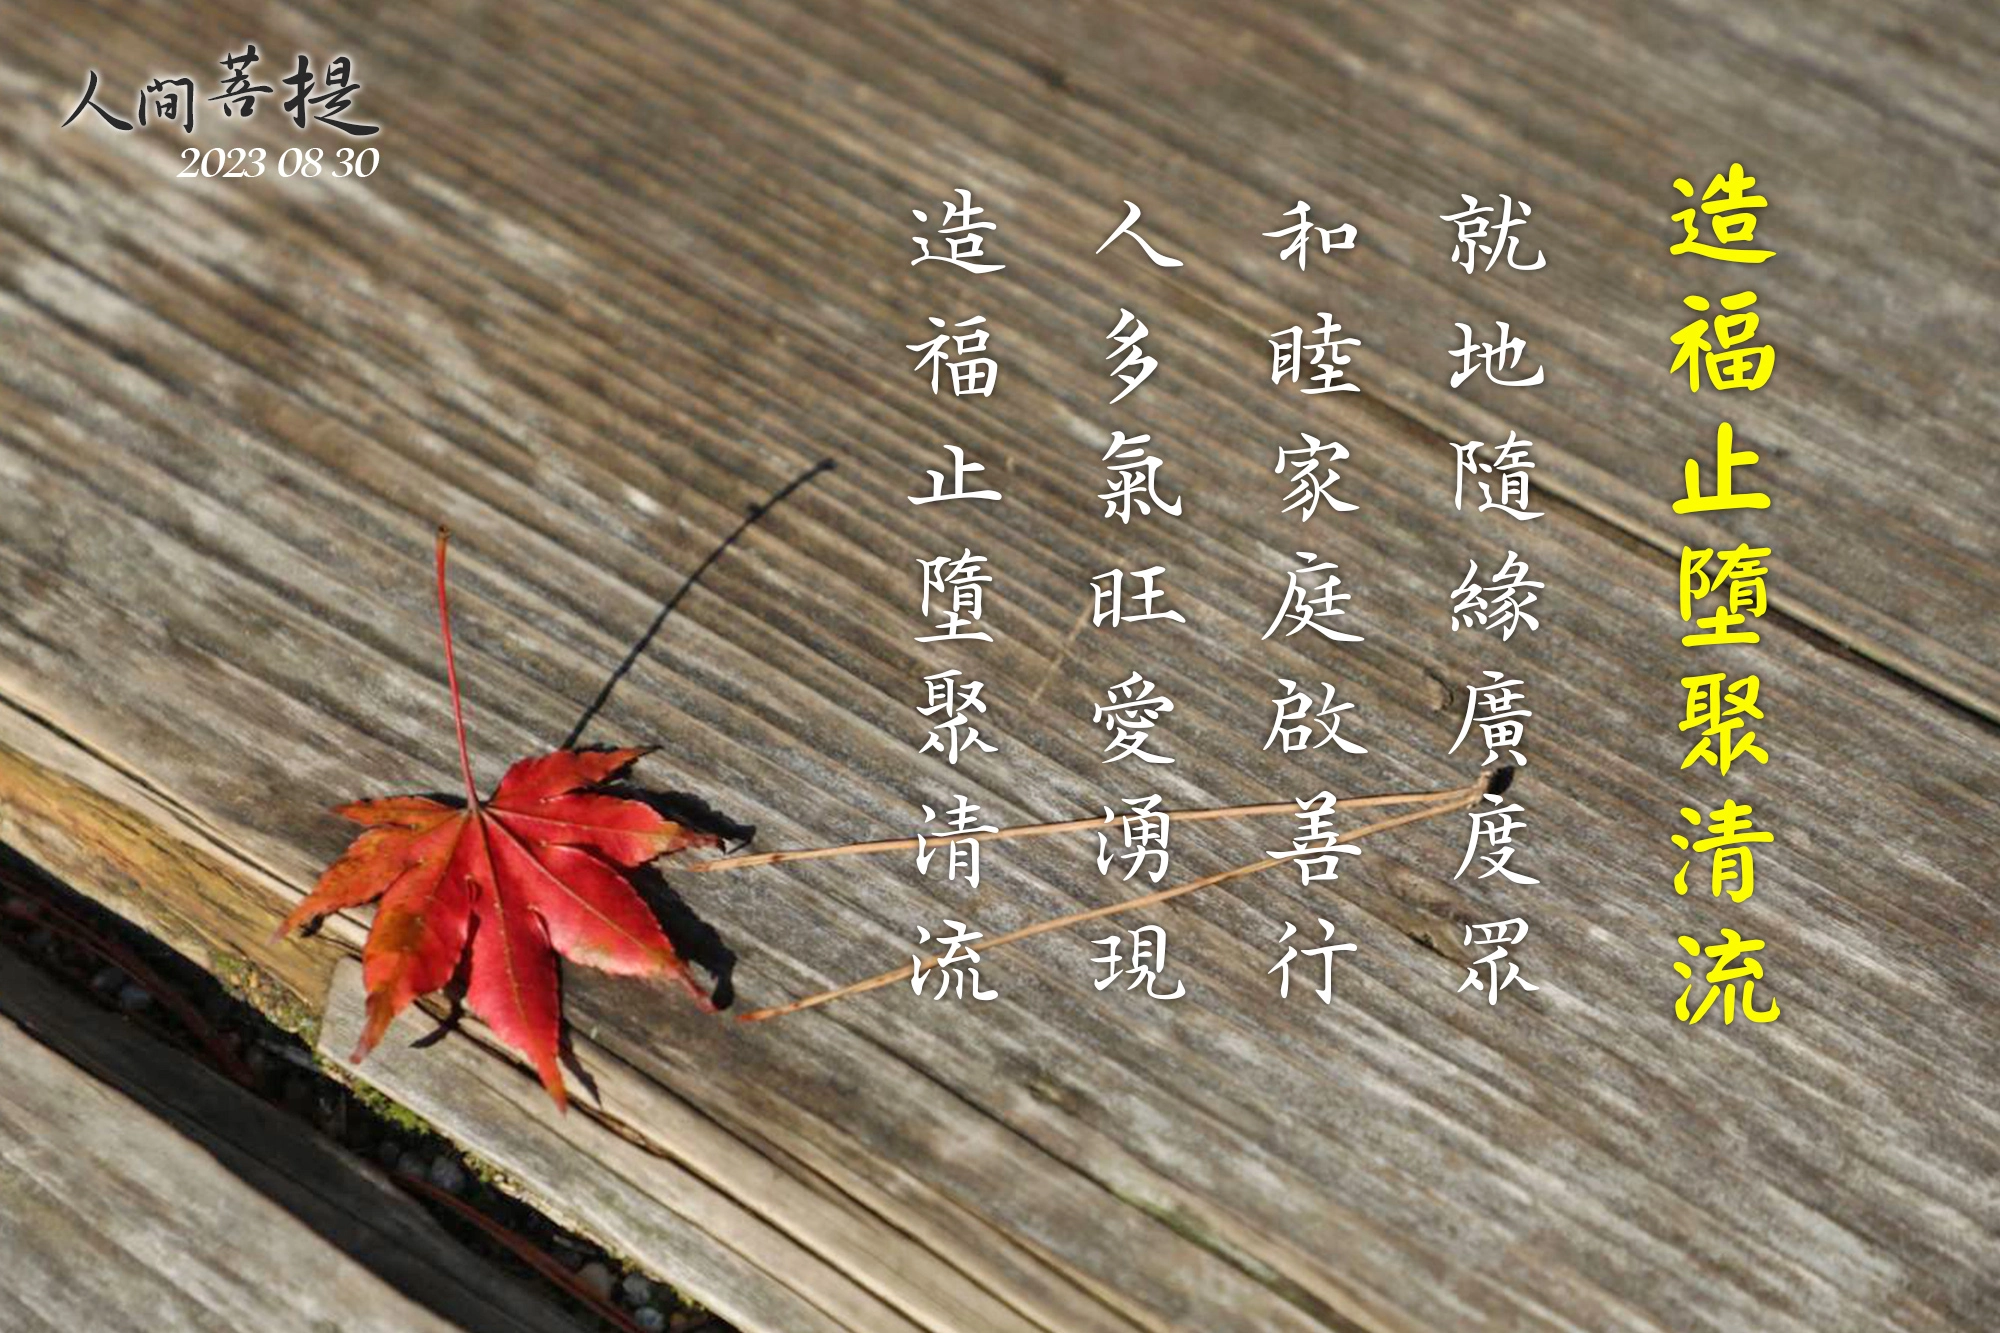 人間菩提
2023 08 30
造福止墮聚清流
就地隨緣廣度眾
和睦家庭啟善行
人多氣旺愛湧現
造福止墮聚清流